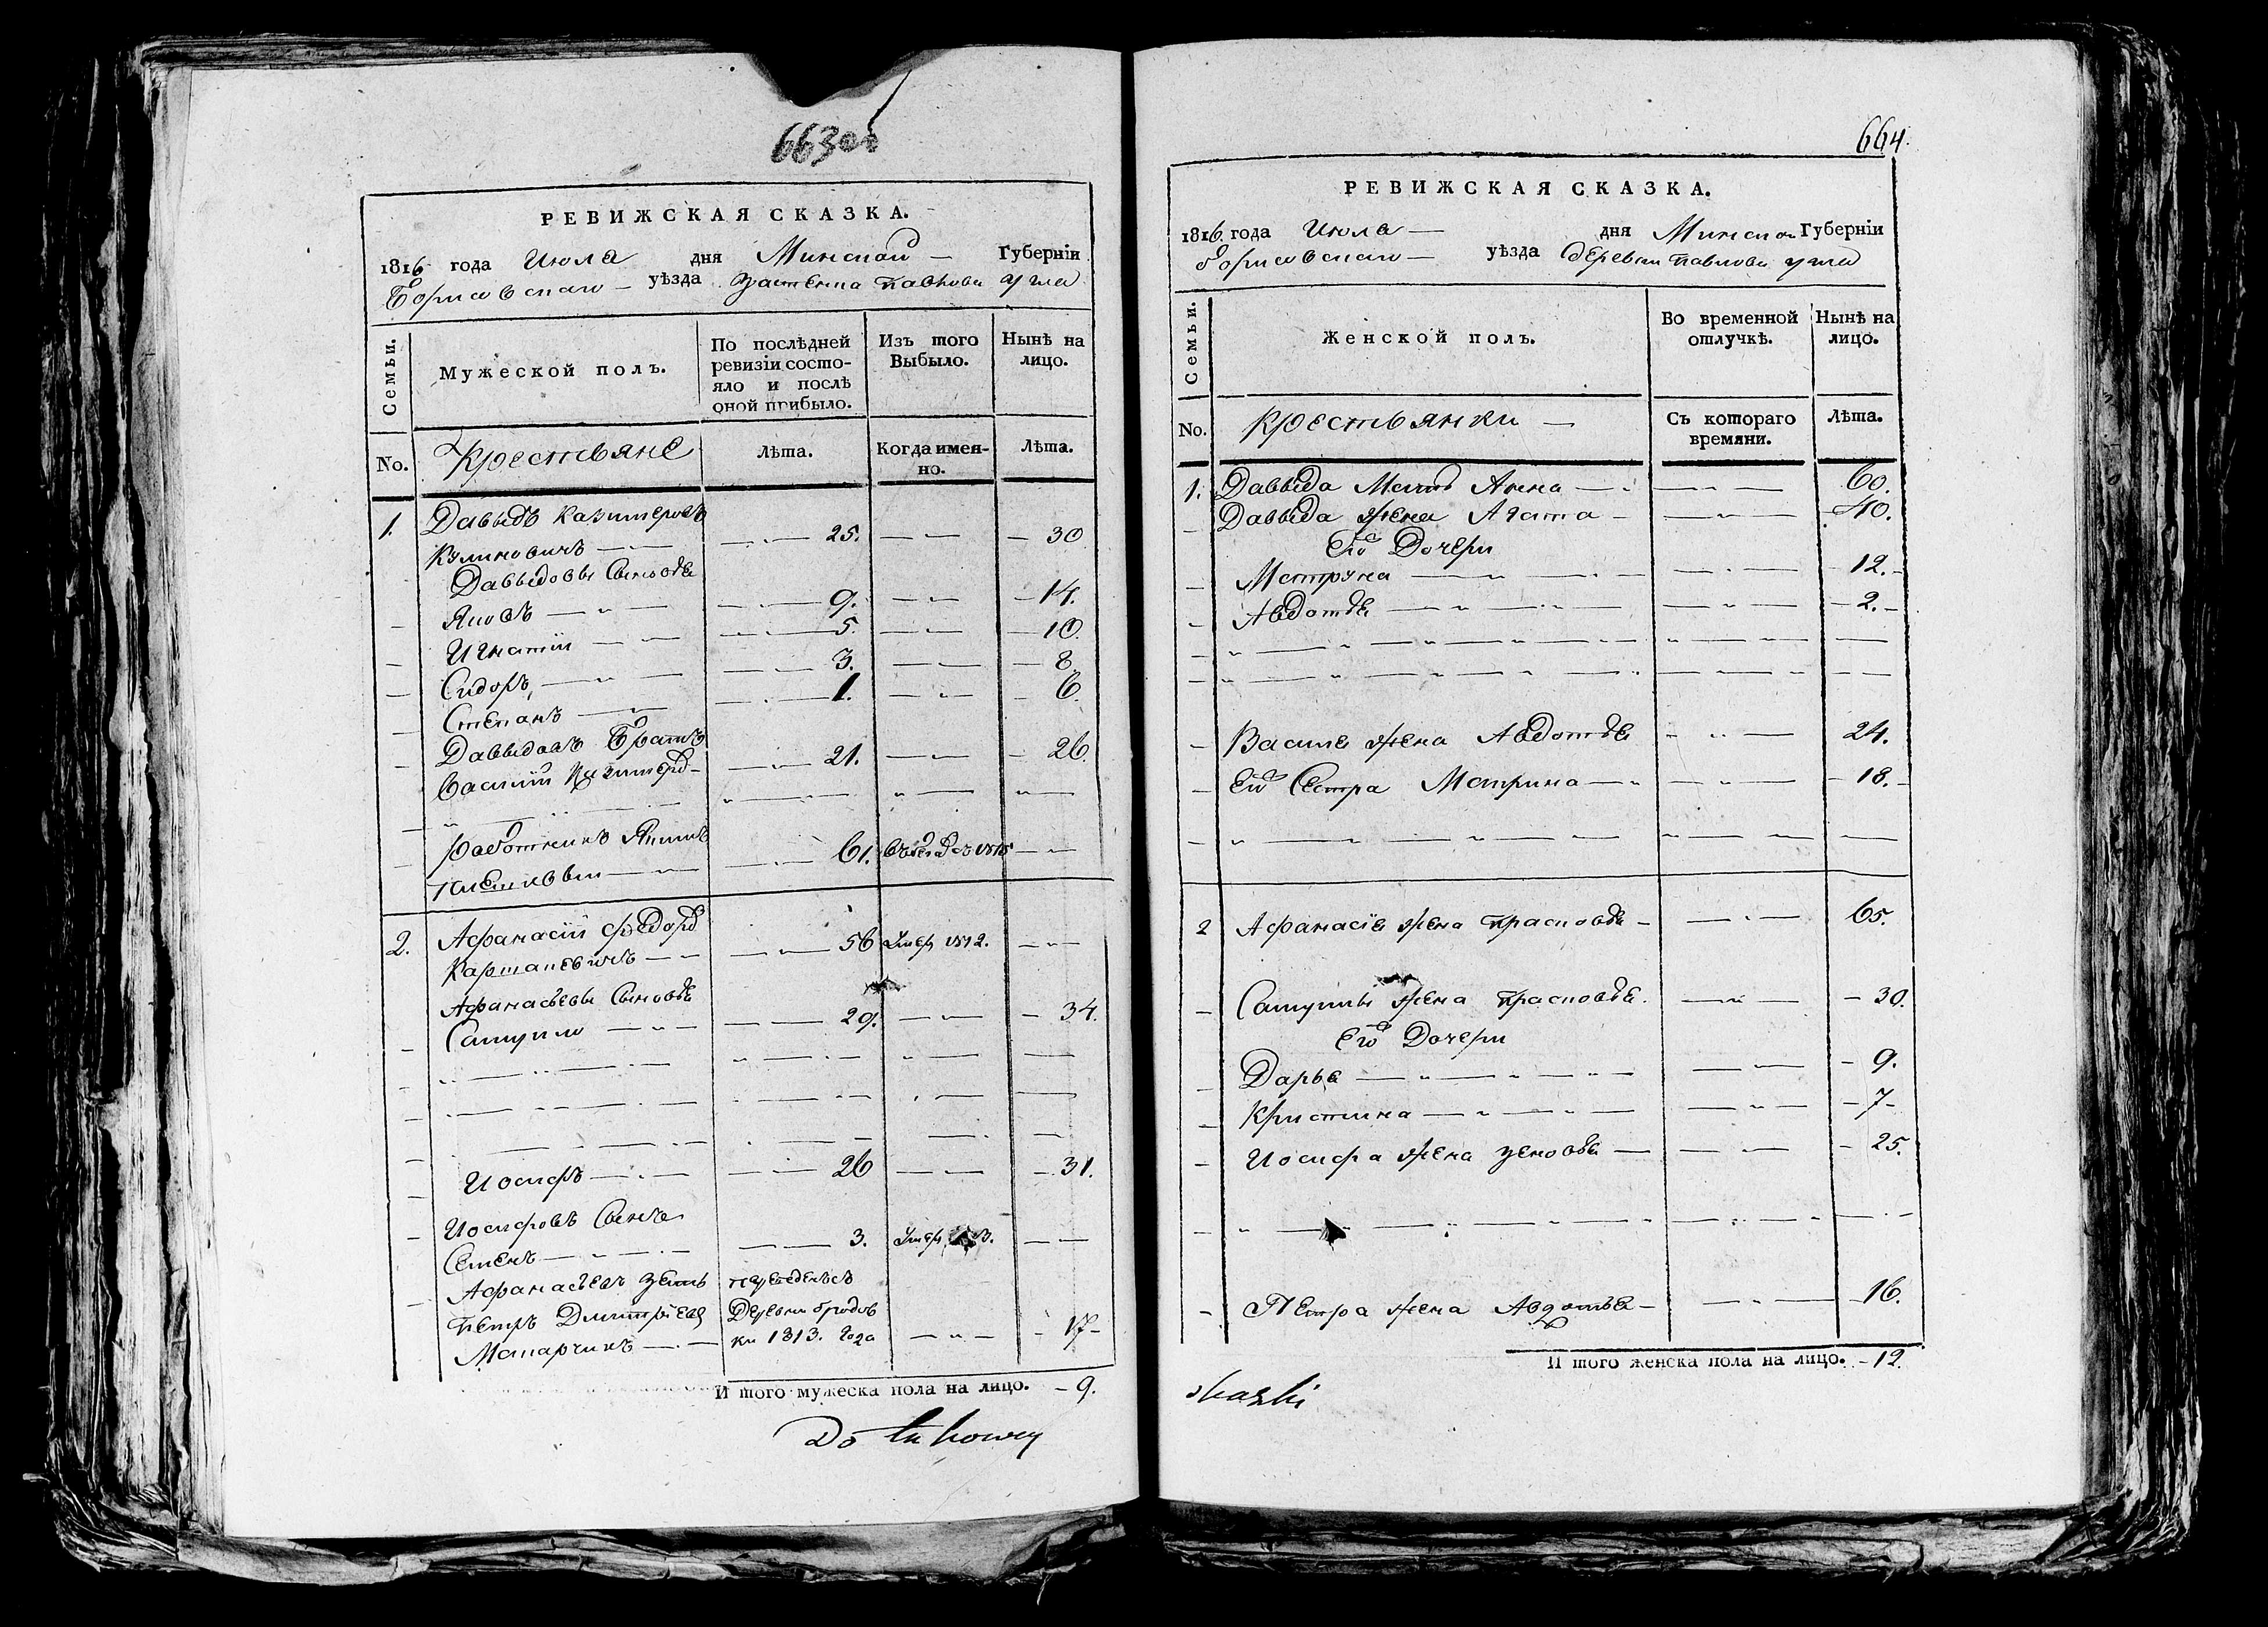 663 об
РЕВИЖСКАЯ СКАЗКА.
1816 года Июля дня Минской Губерніи
Борисовскаго уѣзда Застенка Павлова
Семьи.
Мужеской полъ.
По послѣдней ревизіи состо-
яло и послѣ оной прибыло.
Изъ того Выбыло.
Нынѣ на лицо.
No. Крестьяне Лѣта. Когда имен-
но. Лѣта.
1. Давыдъ Казимеровъ
25. 30
Давыдовы Сыновья
Яковъ 9. 14.
Игнатій 5. 10.
Сидоръ, 3. 8
Степанъ 1. 6.
Давыдовъ Братъ
Василій Казимеров 21. 26.
Работникъ Якимъ
61. 1815
2. Афанасій Федоров
56 Умер 1812.
Афанасьевы Сыновья
Самуило 29. 34.
Иосифъ 26 31.
Иосифовъ Сынъ
Семенъ 3. Умер
Афанасьевъ Зять переведенъ съ
Петръ Дмитріевъ Деревни Бродов
Макарчикъ ки 1813. года 17
И того мужеска пола на лицо. 9.
664.
РЕВИЖСКАЯ СКАЗКА.
1816. года Июля дня Минской Губерніи
Борисовскаго уѣзда деревни Павлова
Семьи.
Женской полъ.
Во временной отлучкѣ.
Нынѣ на лицо.
No. Крестьянки Съ котораго
времяни. Лѣта.
1. Давыда Мать Анна 60.
Давыда Жена Агата 40.
Его Дочери
Матруна 12.
Авдотья 2.
Василя жена Авдотья 24.
Его Сестра Матрина 18.
2 Афанасія жена Прасковья 65.
Самуилы жена Прасковья. 30.
Его Дочери
Дарья 9.
Кристина 7
Иосифа жена Зеновья 25.
Петра жена Авдотья 16.
И того женска пола на лицо. 12.
skazki